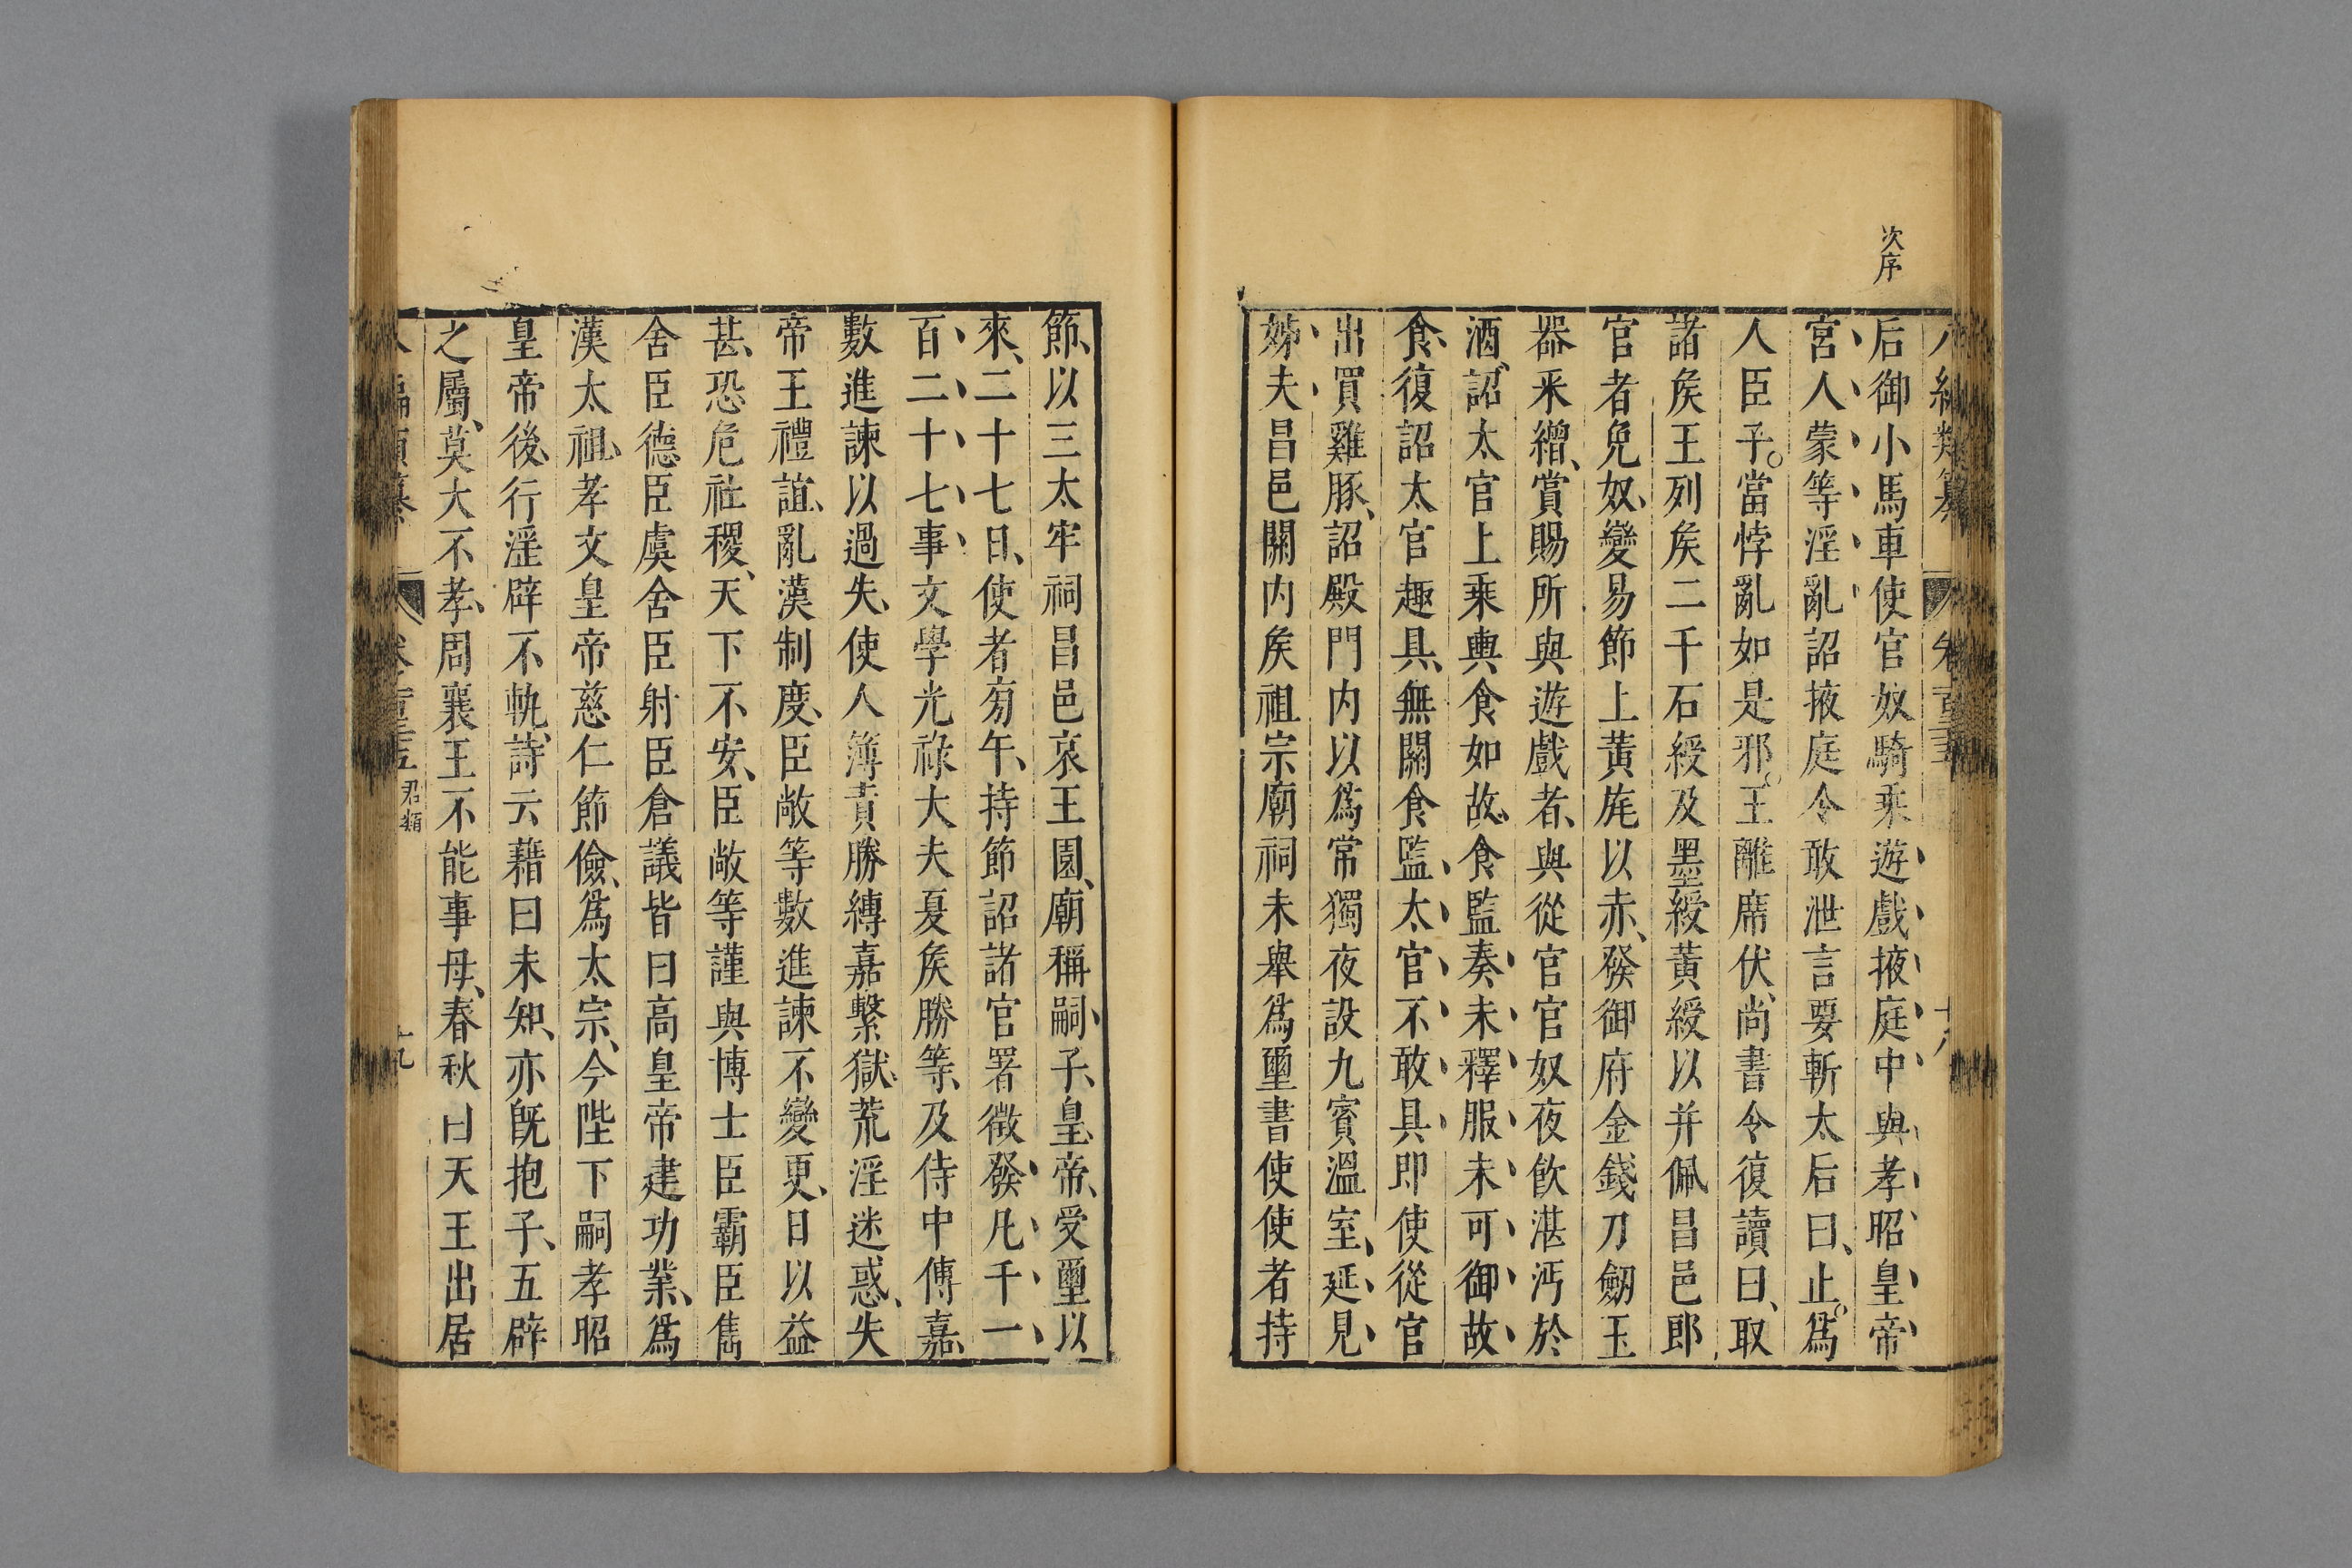 次序
編類纂
后御小馬車使官奴騎乘遊戲掖庭中與孝昭皇帝
宮人蒙等淫亂詔掖庭令敢泄言要斬太后曰、止。爲
人臣子。當悖亂如是邪。王離席伏、尚書令復讀曰、取
諸矦王列矦二千石綬及墨綬黃綬以并佩昌邑郎
官者免奴、變易節上黃旄以赤、發御府金錢刀劒玉
器采繒、賞賜所與遊戲者、與從官官奴夜飮湛沔於
酒、詔太官上乘輿食如故、食監奏未釋服未可御故
食、復詔太官趣具、無關食監、太官不敢具即使從官
出買雞豚、詔殿門內以爲常獨夜設九賓溫室、延見
姊夫昌邑關內矦祖宗廟祠未舉爲璽書使使者持
節、以三太牢祠昌邑哀王園、廟稱嗣子、皇帝、受璽以
來、二十七日、使者旁午、持節詔諸官署徵發凡千一
百二十七事文學光祿大夫夏矦勝等、及侍中傅嘉、
數進諫以過失、使人簿責勝縛嘉繫獄、荒淫迷惑、失
帝王禮誼、亂漢制度、臣敞等數進諫不變更、日以益
甚、恐危社稷、天下不安、臣敞等謹與博士臣霸臣雋
舍臣德、臣虞舍臣射臣倉議皆曰高皇帝建功業、爲
漢太祖、孝文皇帝慈仁節儉、爲太宗、今陛下嗣孝昭
皇帝後、行淫辟不軌、詩云藉曰未知、亦旣抱子、五辟
之屬、莫大不孝、周襄王不能事母、春秋曰天王出居
君類